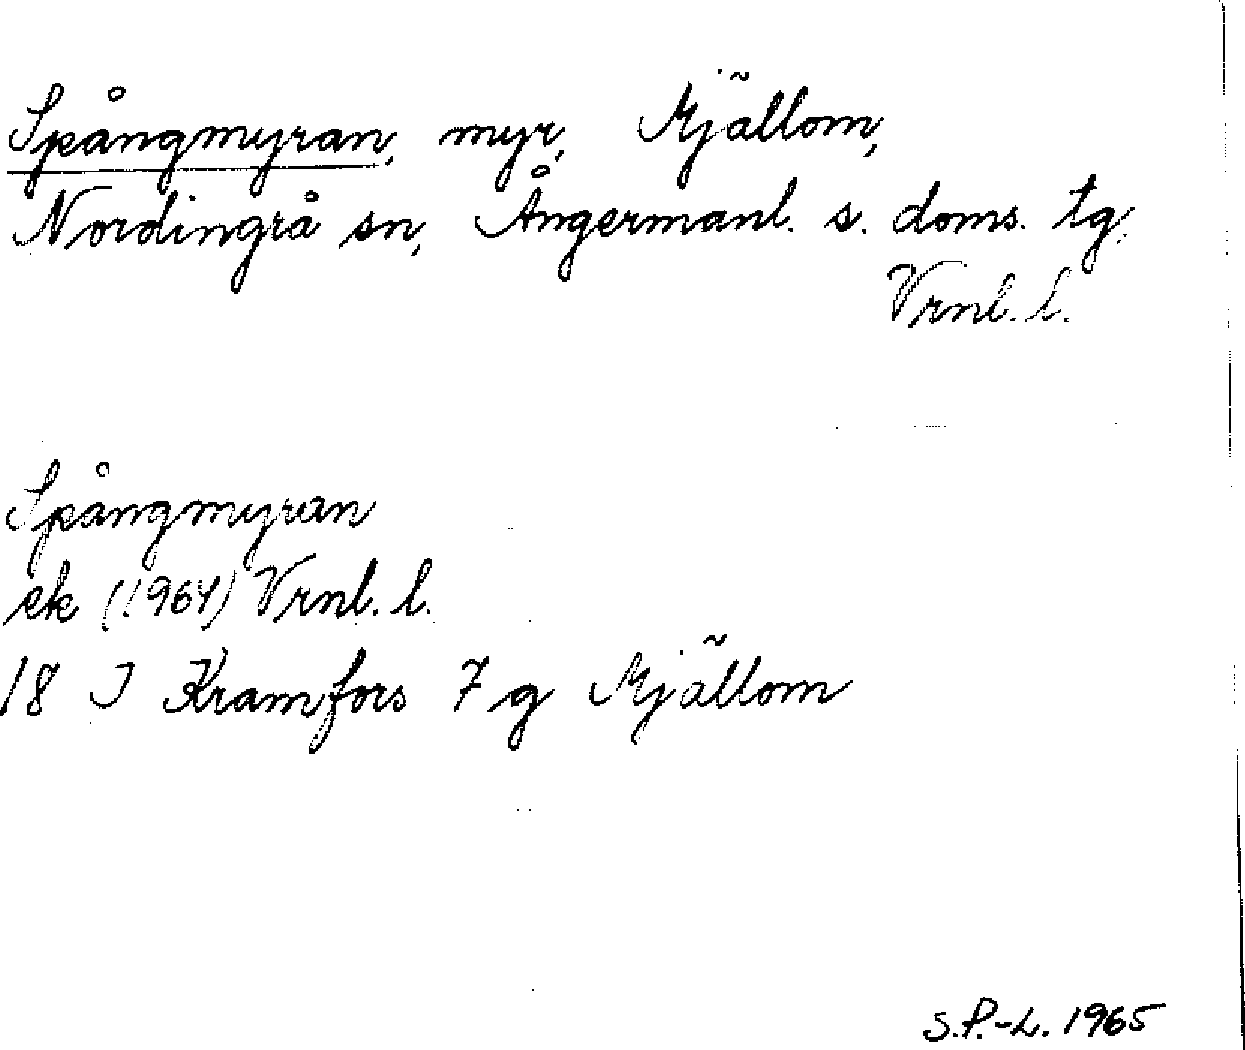 Spångmyran, myr, Mjällom,
Nordingrå sn, Ångermanl. s. doms. tg.
Vrnl. l.
Spångmyran
ek (1964) Vrnl. l.
18 J Kramfors 7 g Mjällom
S.P.-L. 1965